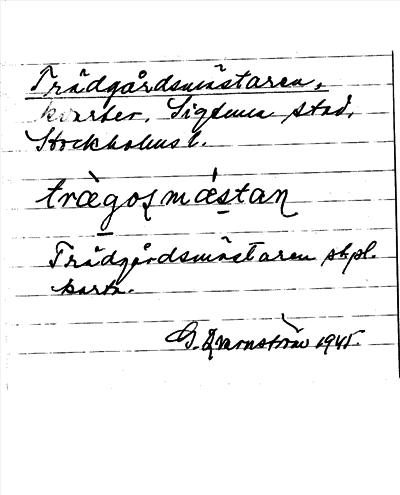 Trädgårdsmästaren,
kvarter, Sigtuna stad,
Stockholms l.
trägosmästan
Trädgårdsmästaren stpl.
kart.
G. Qvarnström 1945.